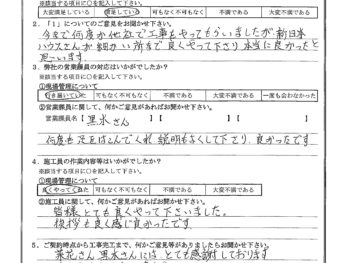 ※該当する項目に○を記入して下さい。
大変満足している 満足している 可も不可もなく 不満である 大変不満である
2. 「1」についてのご意見をお聞かせ下さい。
今まで何度か他社で工事をやってもらいましたが新日本
ハウスさんが細かい所まで良くやって下さり本当に良かったと
思っています
3. 弊社の営業課員の対応はいかがでしたか？
※該当する項目に○を記入して下さい。
①現場管理について
行き届いていた 可も不可もなく 不満である 大変不満である 一度も会わなかった
②営業課員に関して、何かご意見があればお聞かせ下さい。
営業課員名【 黒水さん 】【 】【 】
何度も足をはこんでくれ説明もよくして下さり、良かったです
4. 施工員の作業内容等はいかがでしたか？
※該当する項目に○を記入して下さい。
①現場管理について
良くやってくれた 可も不可もなく 不満である 大変不満である
②施工員に関して、何かご意見があればお聞かせ下さい。
皆様とても良くやって下さいました。
挨拶も良く感じ良かったです
5. ご契約時点から工事完工まで、何かご意見等がありましたらお聞かせ下さい。
菜花さん黒水さんにはとても感謝しております